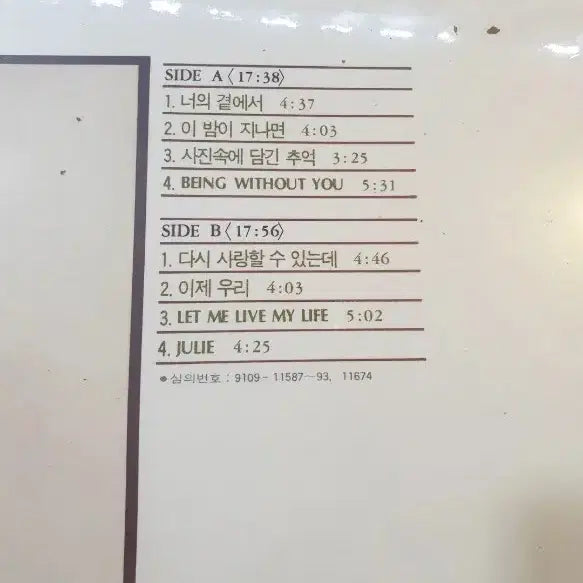 SIDE A〈17:38〉
1. 너의 곁에서 4:37
2. 이 밤이 지나면 4:03
3. 사진속에 담긴 추억 3:25
4. BEING WITHOUT YOU 5:31
SIDE B〈17:56〉
1. 다시 사랑할 수 있는데 4:46
2. 이제 우리 4:03
3. LET ME LIVE MY LIFE 5:02
4. JULIE 4:25
● 심의번호 : 9109 - 11587~93, 11674